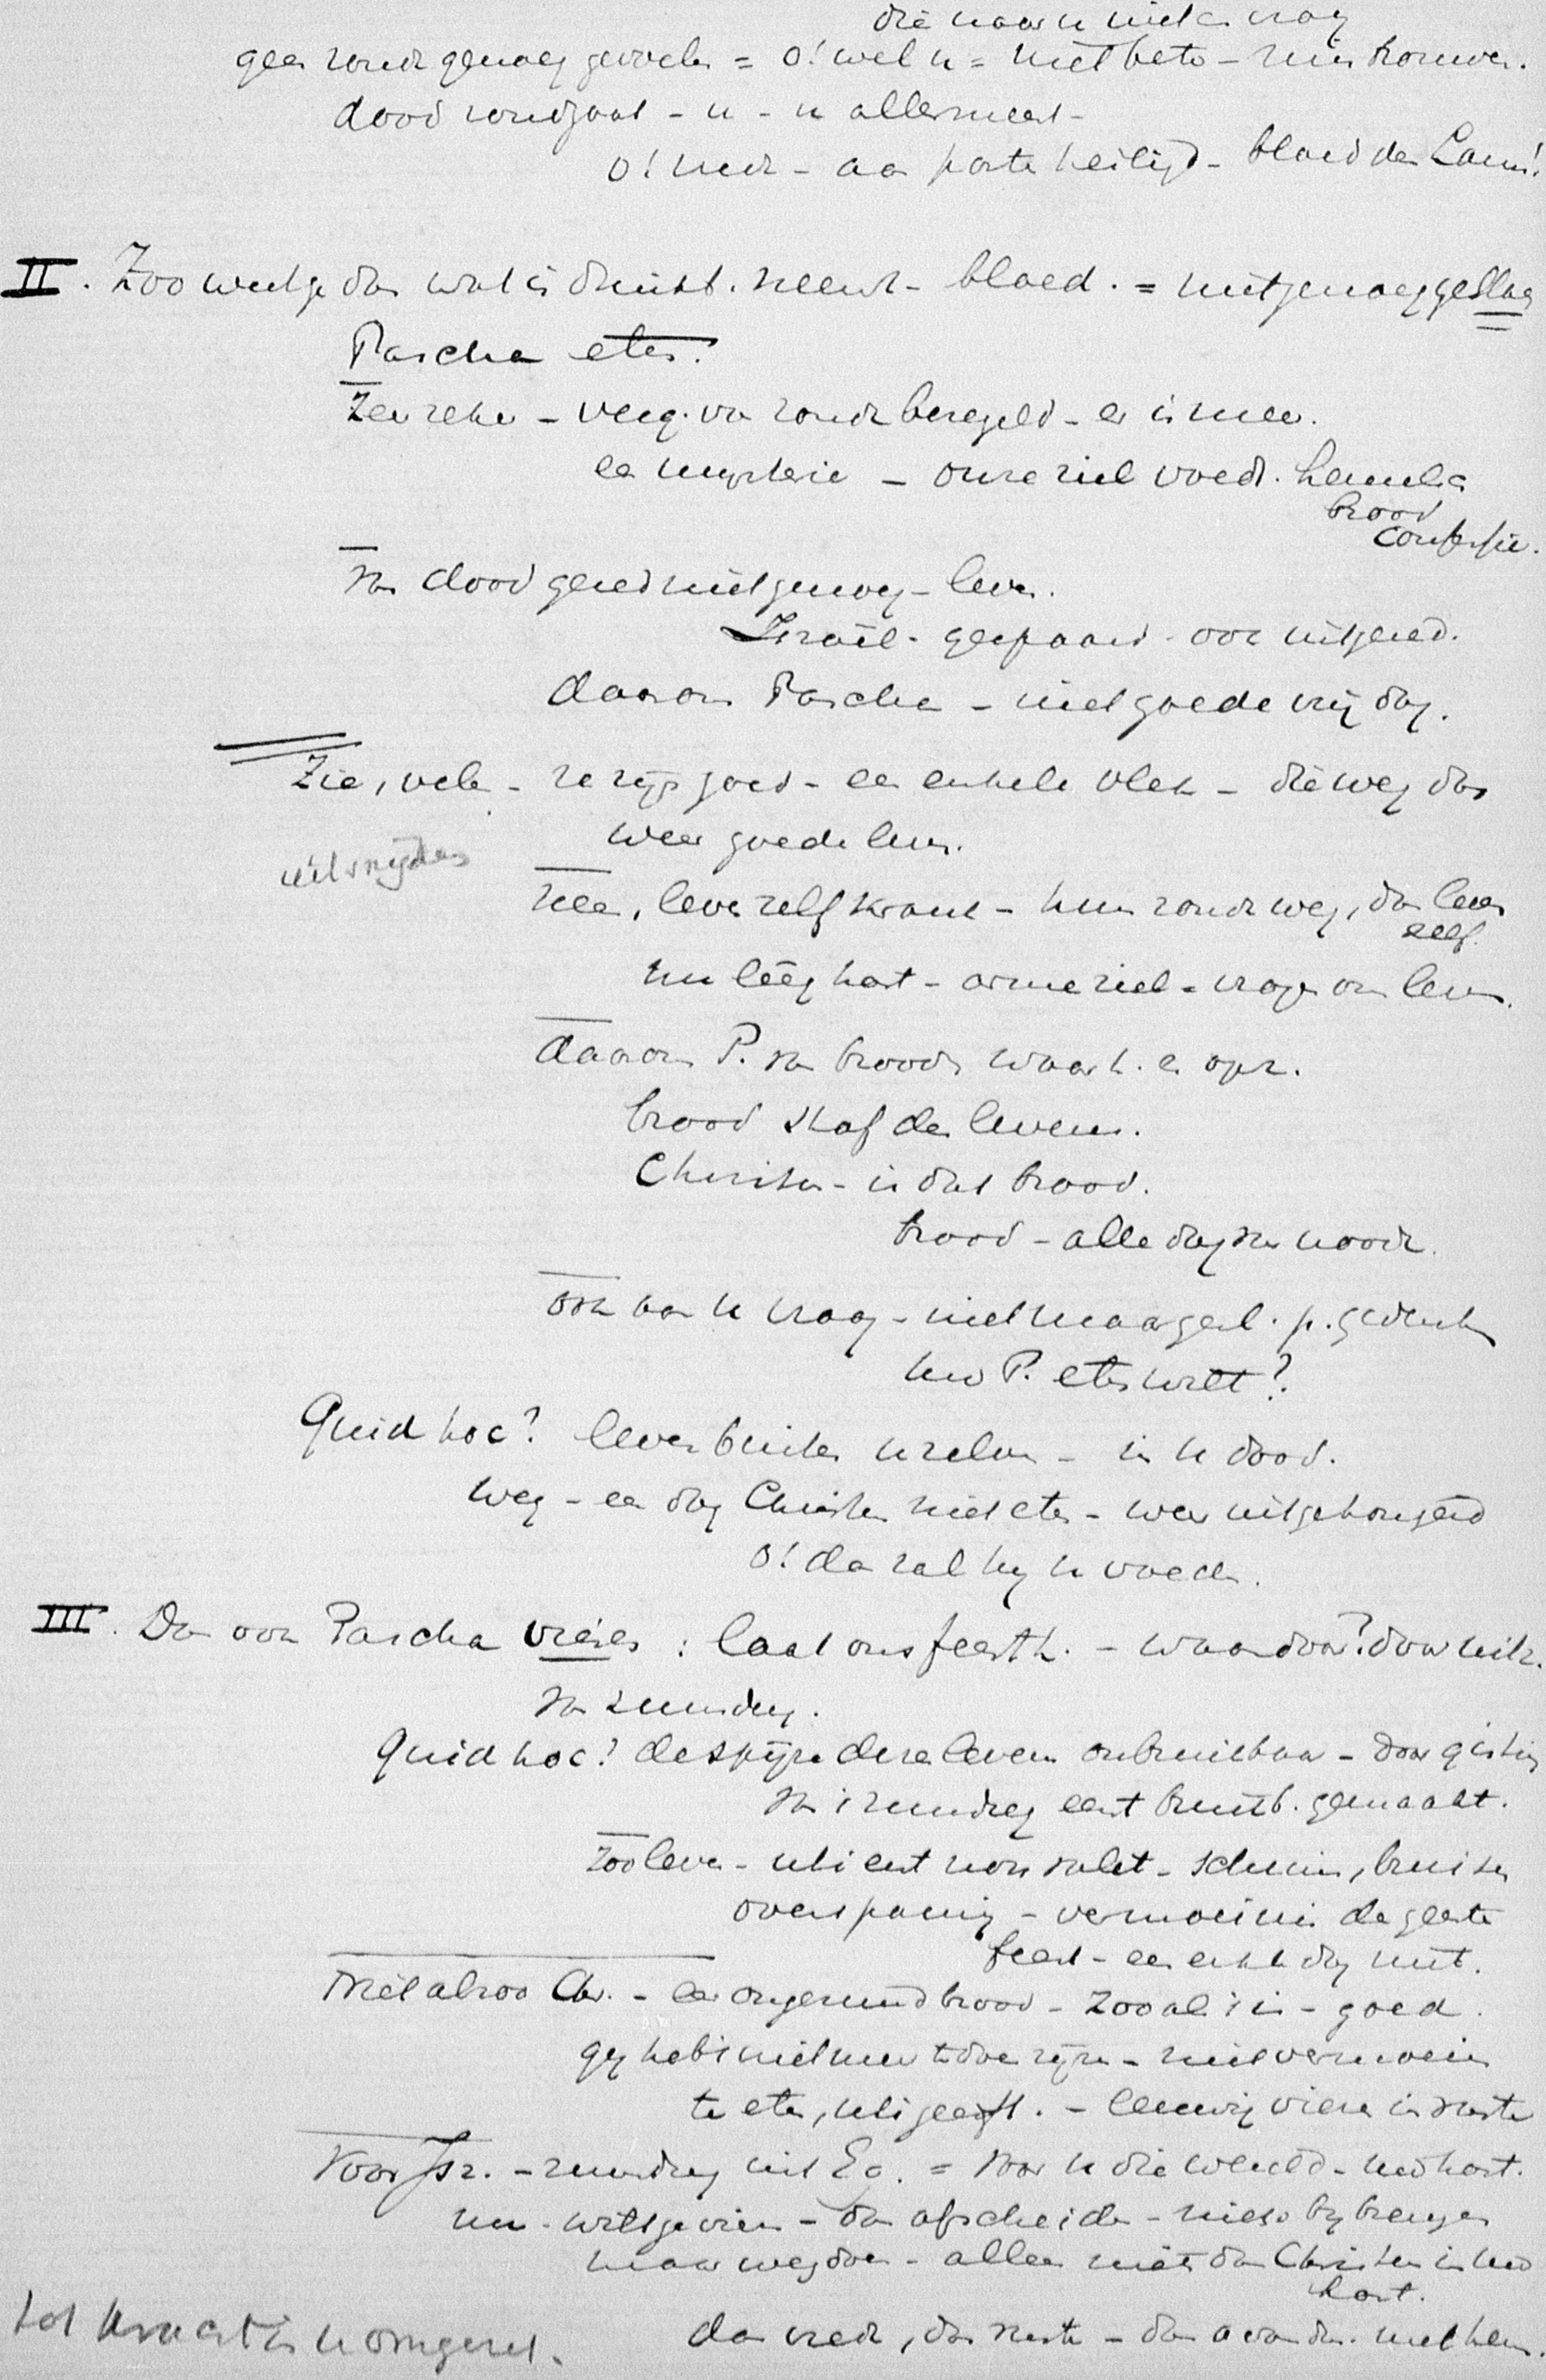 die naar u niet vraag
geen zonde genoeg gevoelen = o! wel u = niet beter - rouwen.
dood rondgaat - u - u allermeest -
o! - aan posten heiligd - bloed des Lams!
II. Zoo weet ge dan wat is druist. neemt - bloed. = niet genoeg geslac
Pascha eten.
Zeer zeker - verg. van zonde bezegeld - er is meer.
een mysterie - onze ziel voedt. hemelsc
brood
confessie.
van dood gered niet genoeg - leven.
Israël - gespaard - ook uitgered.
daarom Pascha - niet goede vrijdag.
Zie, velen - ze zijn goed - een enkele vlek - die weg dan
weer goede leven.
uitsnijden
Neen, leven zelf krank - hun zonde weg, dan leven
zelf.
nu lêêg hart - arme ziel - vragen om leven.
daarom P. van brooden waarh. en opr.
brood staf des levens.
Christus - is dat brood.
brood - alle dagen van noode.
ook van u vraag - niet maar gesl. p. gedenken
uw P. eten wilt?
Quid hoc? leven buiten uzelven - in u dood.
weg - een dag Christus niet eten - weer uitgehongerd
o! dan zal hij u voeden.
III. Dan ook Pascha vieren : laat ons feesth. - waardoor? door uitz.
van zuurdeeg.
Quid hoc? de spijze dezes levens onbruikbaar - door gisting
van 't zuurdeeg eerst bruikb. gemaakt.
Zoo leven - uti est non valet - schuim, bruisen
overspanning - vermoeienis des geestes
feest - een enkele dag niet.
Niet alzoo Chr. - een ongezuurd brood - zooals 't is - goed.
gij hebt niet meer te doen zijn - niet vermoeien
te eten, uti geeft. - leeuwig vieren in ruste
Voor Isr. - zuurdeeg uit Eg. = voor u die wereld - uw hart.
nu - wilt ge vieren - dan afscheiden - niets bijbrengen
maar wegdoen - alleen niets dan Christus in uw
hart.
dan vrede, dan ruste - dan avondm. met hem.
tot kracht in u omgezet.